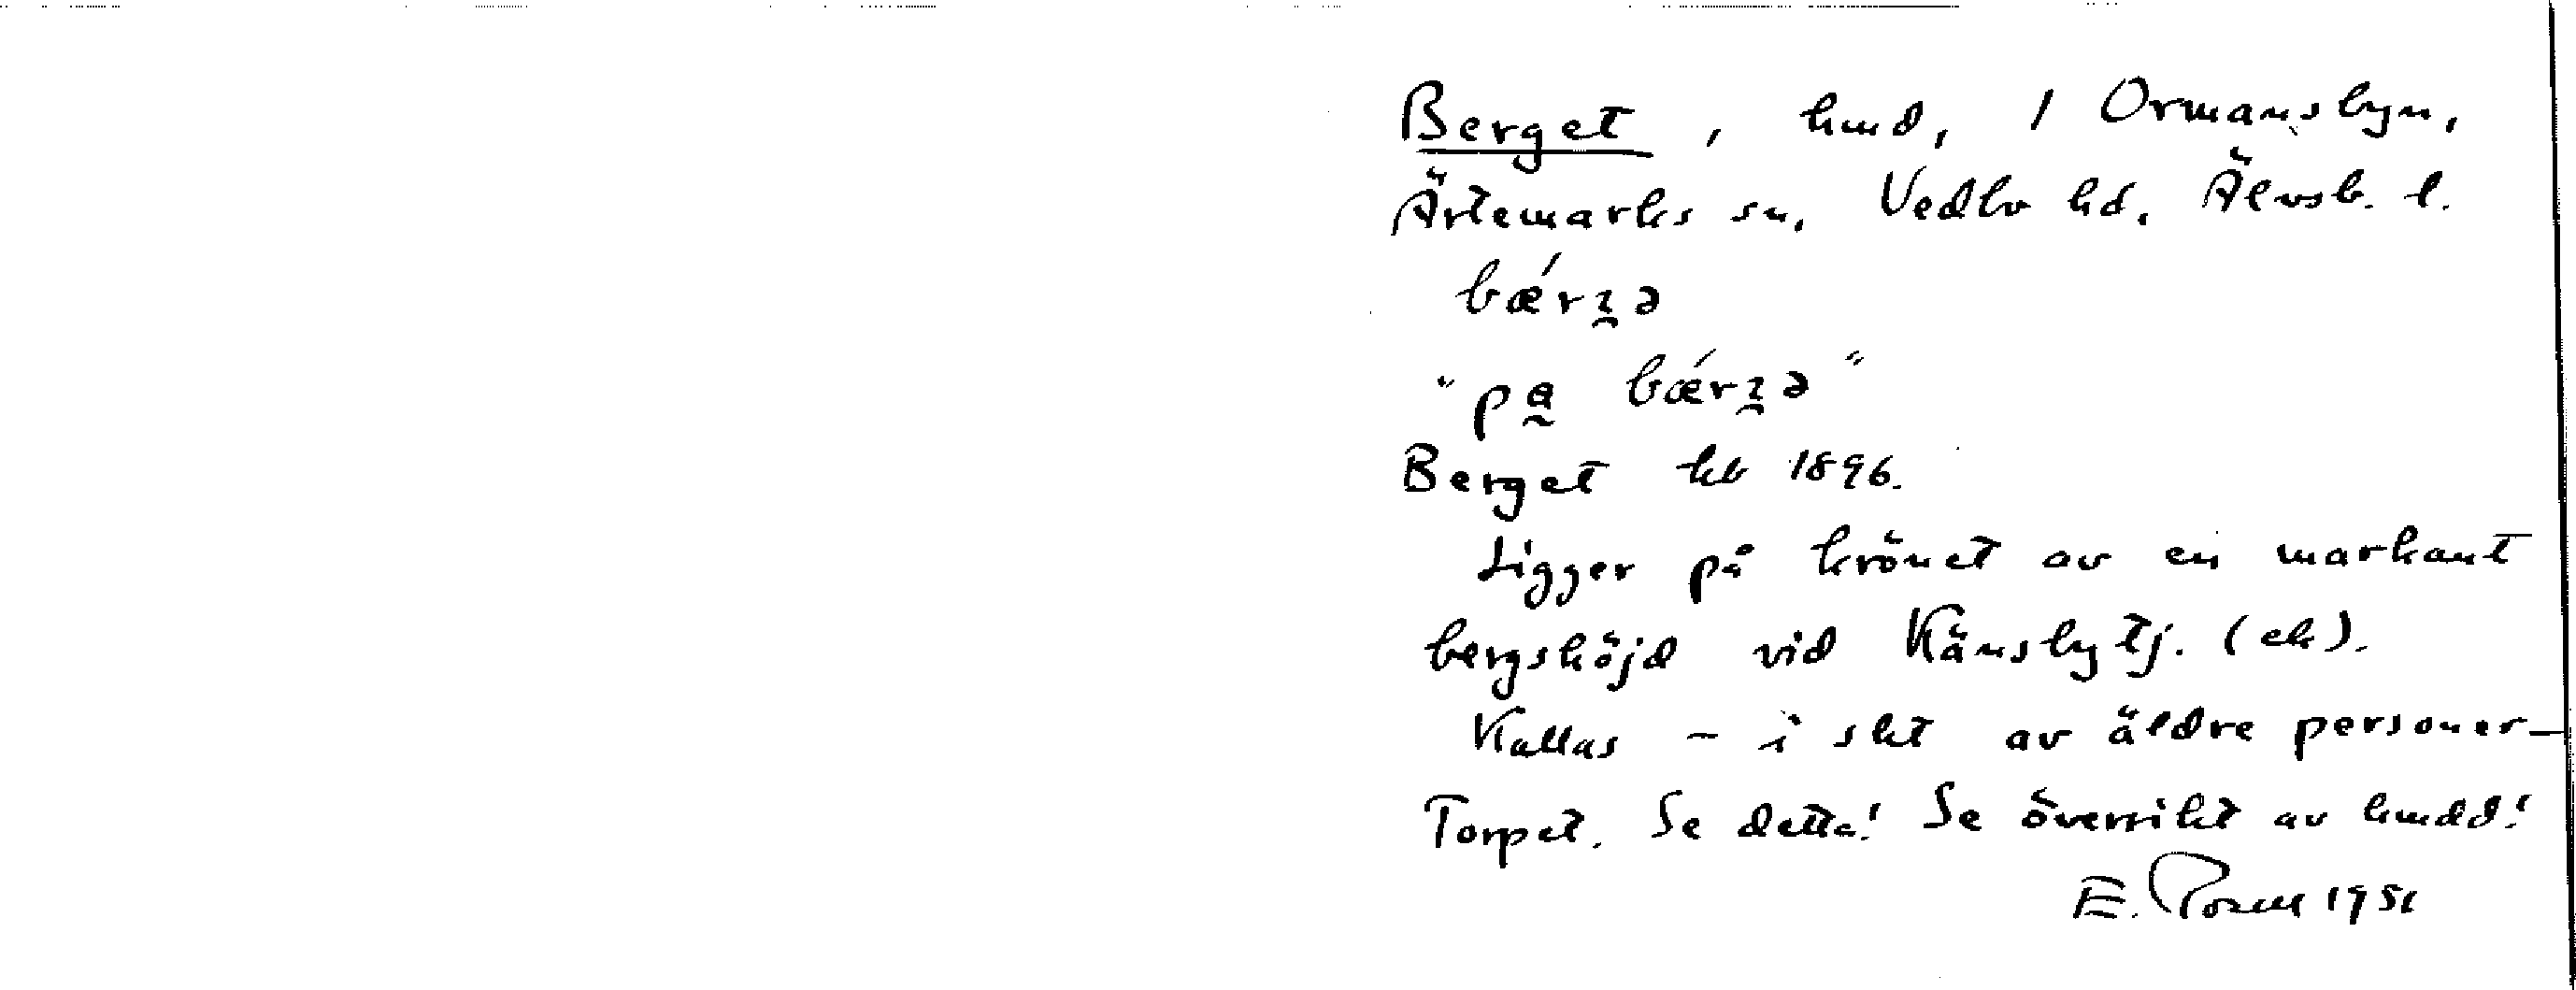 Berget, hmd, 1 Ormansbyn,
Ärtemarks sn, Vedbo hd, Älvsb. l.
bǽrʒə
"pa bǽrʒə"
Berget kb 1896.
Ligger på krönet av en markant
bergshöjd vid Känsbytj. (ek).
Kallas - i skt av äldre personer -
Torpet. Se detta! Se översikt av hmdd!
E. 1951